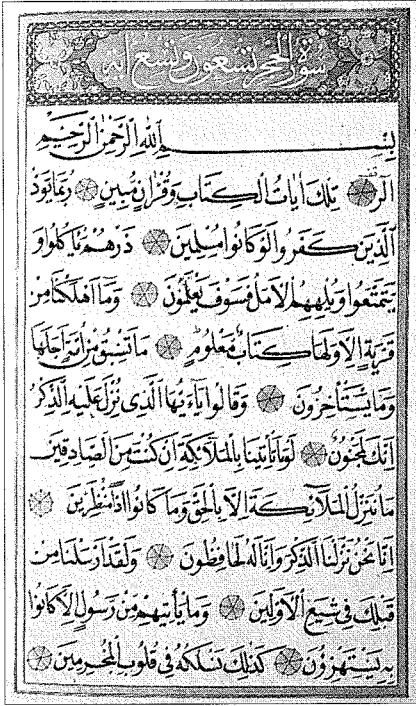 سورة الحجر تسعون وتسع آية
بِسْمِ اللهِ الرَّحْمٰنِ الرَّحِيمِ
الٓرٰ تِلْكَ اٰيَاتُ الْكِتَابِ وَقُرْاٰنٍ مُبِينٍ رُبَمَا يَوَدُّ
الَّذِينَ كَفَرُوا لَوْ كَانُوا مُسْلِمِينَ ذَرْهُمْ يَأْكُلُوا وَ
يَتَمَتَّعُوا وَيُلْهِهِمُ الْاَمَلُ فَسَوْفَ يَعْلَمُونَ وَمَا اَهْلَكْنَا مِنْ
قَرْيَةٍ اِلَّا وَلَهَا كِتَابٌ مَعْلُومٌ مَا تَسْبِقُ مِنْ اُمَّةٍ اَجَلَهَا
وَمَا يَسْتَأْخِرُونَ وَقَالُوا يَٓا اَيُّهَا الَّذِى نُزِّلَ عَلَيْهِ الذِّكْرُ
اِنَّكَ لَمَجْنُونٌ لَوْ مَا تَأْتِينَا بِالْمَلٰٓئِكَةِ اِنْ كُنْتَ مِنَ الصَّادِقِينَ
مَا نُنَزِّلُ الْمَلٰٓئِكَةَ اِلَّا بِالْحَقِّ وَمَا كَانُوا اِذًا مُنْظَرِينَ
اِنَّا نَحْنُ نَزَّلْنَا الذِّكْرَ وَاِنَّا لَهُ لَحَافِظُونَ وَلَقَدْ اَرْسَلْنَا مِنْ
قَبْلِكَ فِى شِيَعِ الْاَوَّلِينَ وَمَا يَأْتِيهِمْ مِنْ رَسُولٍ اِلَّا كَانُوا
بِهِ يَسْتَهْزِؤُنَ كَذٰلِكَ نَسْلُكُهُ فِى قُلُوبِ الْمُجْرِمِينَ